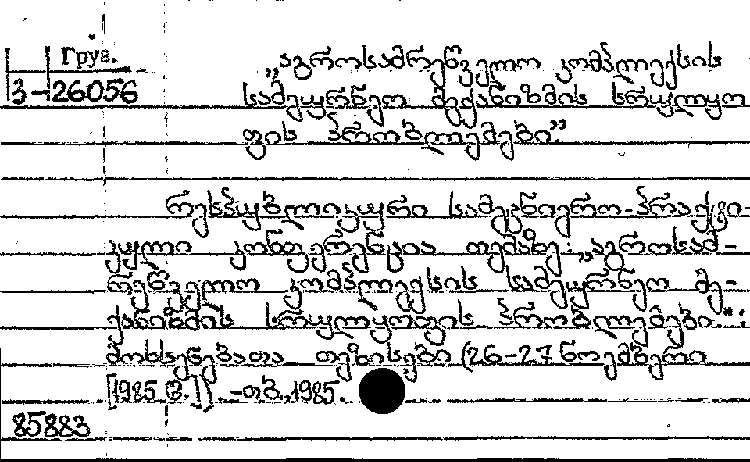 Груз.
3-26056
„აგროსამრეწველო კომპლექსის
სამეურნეო მექანიზმის სრულყო
ფის პრობლემები”
რესპუბლიკური სამეცნიერო-პრაქტი-
კული კონფერენცია თემაზე: „აგროსამ-
რეწველო კომპლექსის სამეურნეო მე-
ქანიზმის სრულყოფის პრობლემები.“:
მოხსენებათა თეზისები (26-27 ნოემბერი
[1985 წ.]). -თბ., 1985.
85883